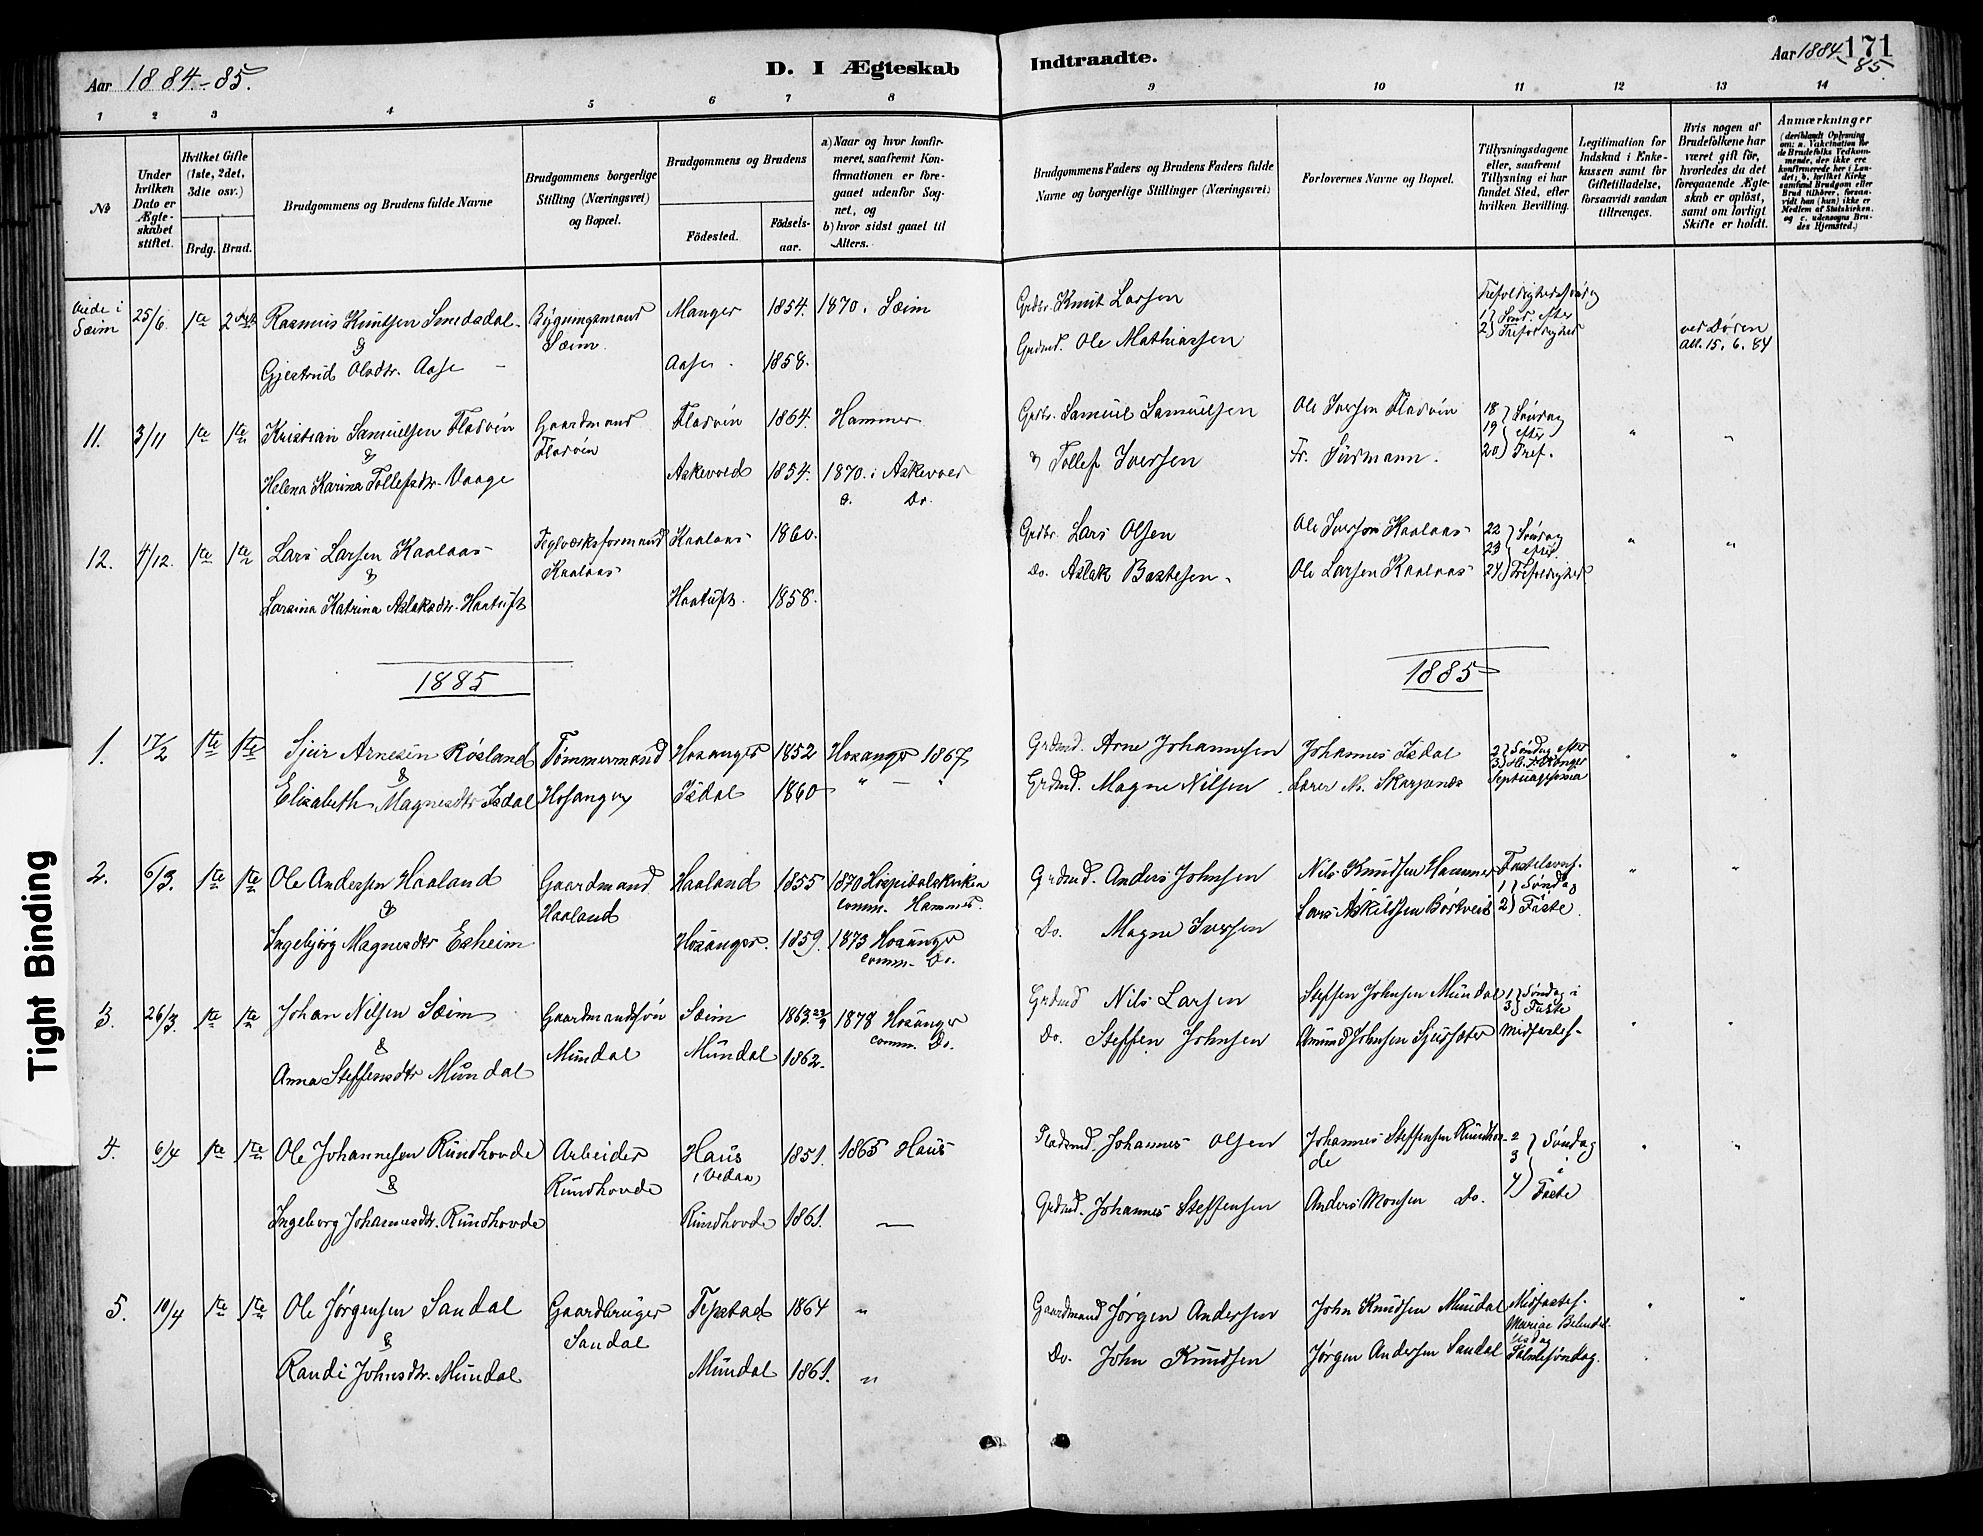 Aar 1884-85.
D. I Ægteskab
Indtraadte.
Aar 1884-85.
171
1 2 3 4 5 6 7 8 9 10 11 12 13 14
No
Under hvilken Dato er Ægteskabet stiftet.
Hvilket Gifte (1ste, 2det, 3die osv.)
Brdg. Brud.
Brudgommens og Brudens fulde Navne
Brudgommens borgerlige Stilling (Næringsvei) og Bopæl.
Brudgommens og Brudens
Fødested.
Fødselsaar.
a) Naar og hvor konfirmeret, saafremt Konfirmationen er foregaaet udenfor Sognet, og
b) hvor sidst gaaet til Alters.
Brudgommens Faders og Brudens Faders fulde Navne og borgerlige Stillinger (Næringsvei)
Forlovernes Navne og Bopæl.
Tillysningsdagene eller, saafremt Tillysning ei har fundet Sted, efter hvilken Bevilling.
Legitimation for Indskud i Enkekassen samt for Giftetilladelse, forsaavidt saadan tiltrænges.
Hvis nogen af Brudefolkene har været gift før, hvorledes da det foregaaende Ægteskab er opløst, samt om lovligt Skifte er holdt.
Anmærkninger
(deriblandt Oplysning om: a. Vakcination for de Brudefolks Vedkommende, der ikke ere konfirmerede her i Landet; b. hvilket Kirkesamfund Brudgom eller Brud tilhører, forsaavidt han (hun) ikke er Medlem af Statskirken, og c. udensogns Brudes Hjemsted.)
Viede i Sæim 25/6. 1ste 2det Rasmus Knutsen Smedsdal Bygningsmand Sæim Manger 1854. 1870 i Sæim Grdbr. Knut Larsen Trefoldighedssøndag
1) Sønd. efter
2) Trefoldighed
ved Døden
Att. 15.6.84
&
Gjertrud Olsdtr. Aase Aase. 1858. Grdmd. Ole Mathiassen
11. 3/11 1ste 1ste Kristian Samuelsen Fladvøn Gaardmand Fladvøn Fladvøn 1864. Hammer Grdbr. Samuel Samuelsen Ole Iversen Fladvøn 18) 19) 20) Søndag efter Tref. " "
&
Helena Karina Tollefsdtr. Vaage Askevold 1854. 1870 i Askevold
c. Do. " Tollef Iversen Fr. Sürmann.
12. 4/12. 1ste 1ste Lars Larsen Kaalaas Teglverksformand Kaalaas Kaalaas 1860. Grdbr. Lars Olsen Ole Iversen Kaalaas 22) 23) 24) Søndag efter Trefoldighed " "
&
Larsina Katrina Aslaksdtr. Haatuft Haatuft. 1858. Do. Aslak Bastesen. Ole Larsen Kaalaas
1885
1885
1. 17/2 1ste 1ste Sjur Arnesen Røsland Tømmermand Hosanger Hosanger 1852 Hosanger 1867 Grdmd. Arne Johannesen Johannes Isdal 2) Søndag efter
3) H. 3 Konger
Septuagesima " "
&
Elisabeth Magnesdtr Isdal Isdal 1860 " — " Grdmd. Magne Nilsen Lærer N. Skarpenæs
2. 6/3. 1ste 1ste Ole Andersen Haaland Gaardmand Haaland Haaland 1855 1870 Hospitalskirken
comm. Hammer. Grdmd. Anders Johnsen Nils Knudsen Hammer Fastelavnss.
1) Søndag
2) Faste " "
&
Ingebjørg Magnesdtr Esheim Hosanger. 1859. 1873 Hosanger
comm. Do. Do. Magne Iversen Lars Askildsen Börtveit
3. 26/3. 1ste 1ste Johan Nilsen Sæim Gaardmandssøn Mundal Sæim 1863 1878 Hosanger
comm. Do. Grdmd Nils Larsen Steffen Johnsen Mundal 1) 3) Søndag i Faste
Midfastes. " "
&
Anna Steffensdtr Mundal Mundal 1862. Do. Steffen Johnsen Amund Johnsen Sjursæter
4. 6/4 1ste 1ste Ole Johannesen Rundhovde Arbeider Rundhovde Haus (Vedaa) 1851. 1865 Haus Pladsmd. Johannes Olsen Johannes Steffensen Rundhovde 2 3 4) Søndag i Faste " "
&
Ingeborg Johannesdtr. Rundhovde Rundhovde 1861. — Grdmd. Johannes Steffensen Anders Monsen Do.
5. 10/4 1ste 1ste Ole Jørgensen Sandal Gaardbruger Sandal Tepstad 1864 " Gaardmand Jørgen Andersen John Knudsen Mundal Midfastes.
Mariæ Bebudelsesdag
Palmesøndag. " "
&
Randi Johnsdtr. Mundal Mundal 1861. " Do. John Knudsen Jørgen Andersen Sandal
Tight Binding